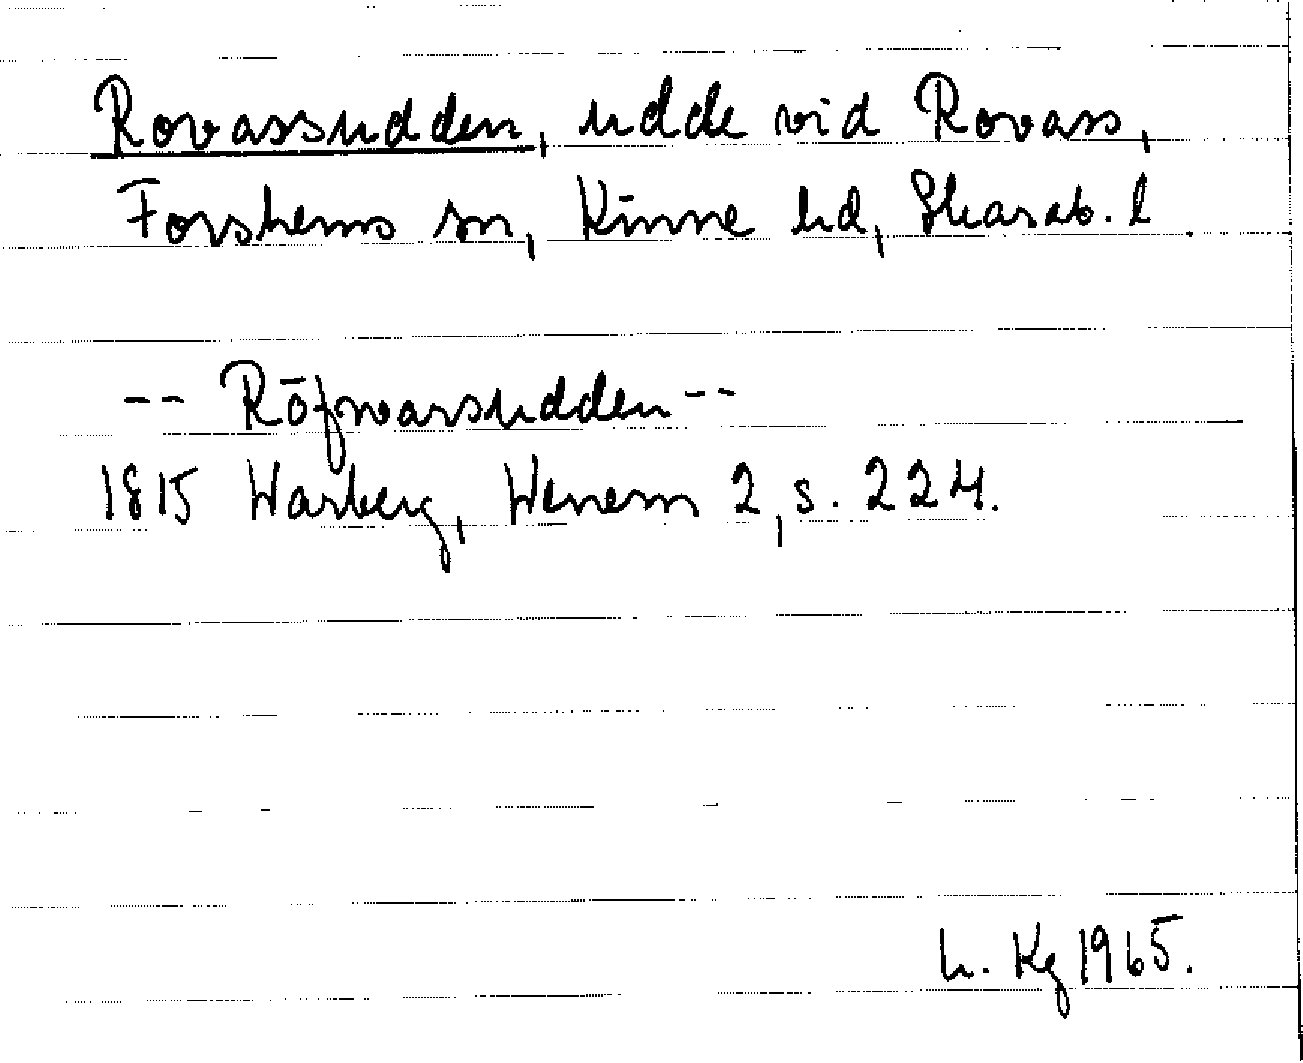 Rovassudden, udde vid Rovass,
Forshems sn, Kinne hd, Skarab. l.
-- Röfwarsudden --
1815 Warberg, Wenern 2, s. 224.
h. Kg 1965.